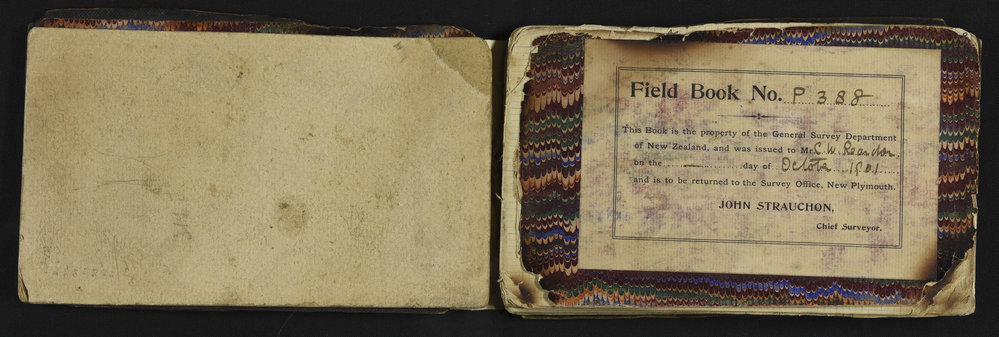 Field Book No. P 388
This Book is the property of the General Survey Department
of New Zealand, and was issued to Mr. C. W. Reardon.
on the — day of October 1901
and is to be returned to the Survey Office, New Plymouth.
JOHN STRAUCHON,
Chief Surveyor.